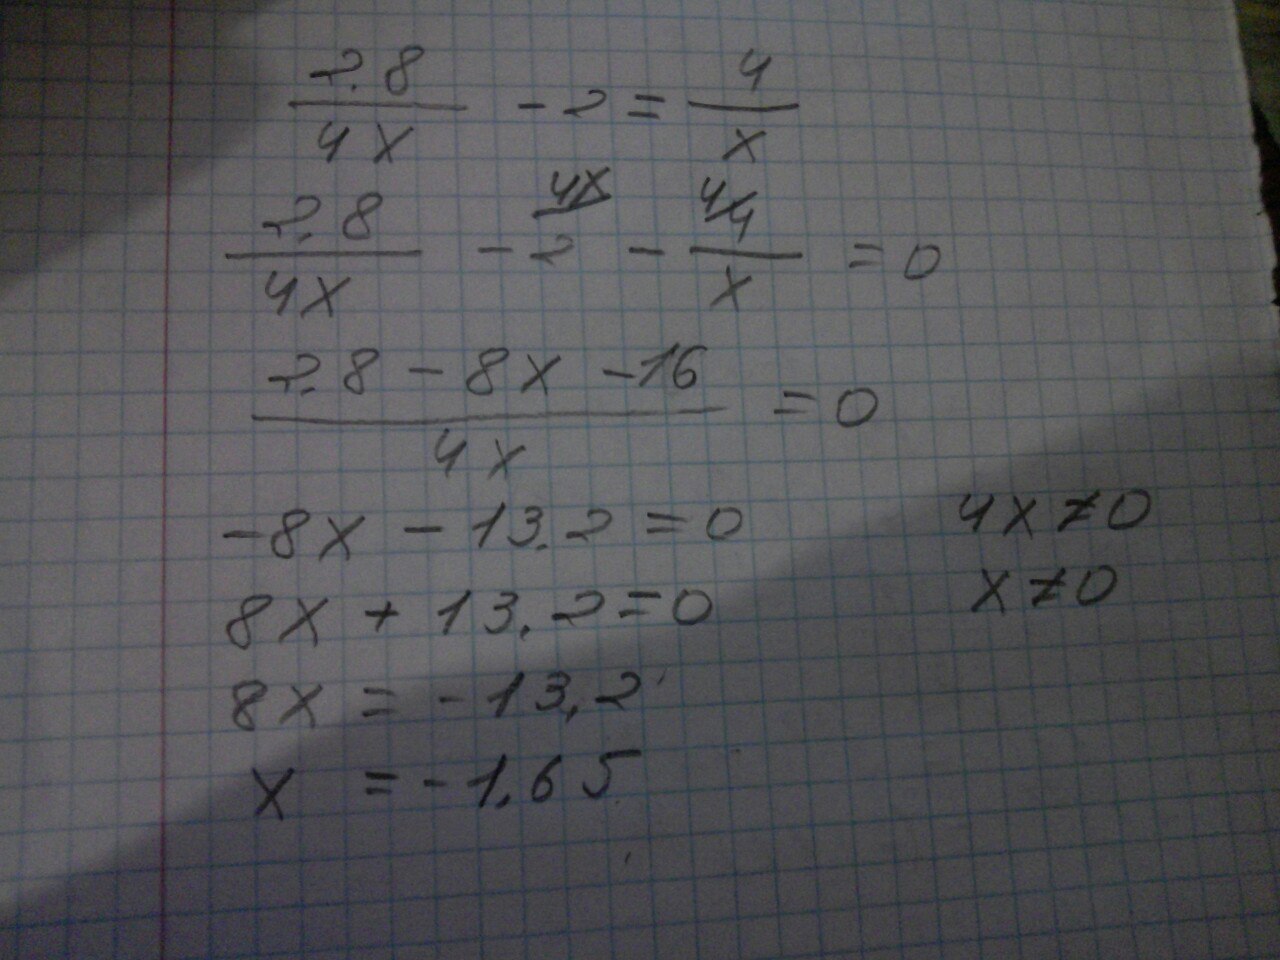 2.8/4x - 2 = 4/x
2.8/4x - 2^{4x/} - 4^{4/}/x = 0
(2.8 - 8x - 16)/4x = 0
-8x - 13.2 = 0
4x ≠ 0
8x + 13.2 = 0
x ≠ 0
8x = -13,2
x = -1.65